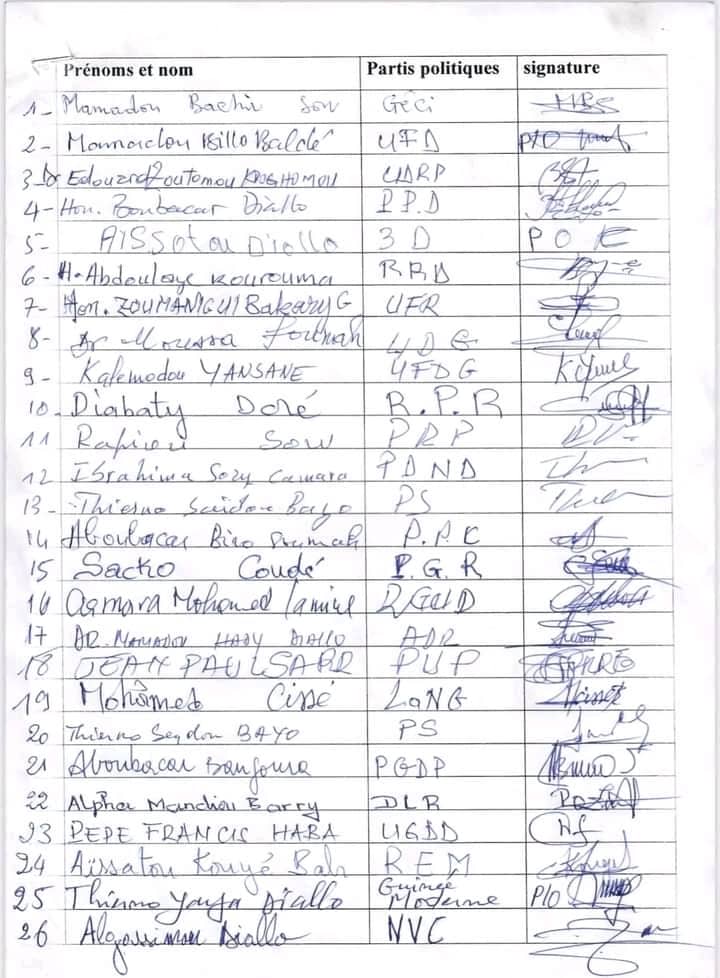 Prénoms et nom Partis politiques signature
1- Mamadou Bachir Sow Géci
2- Mamadou Billo Baldé UFD P/O
3- Dr Edouard Zoutomou KPOGHOMOU UDRP
4- Hon. Boubacar Diallo P.P.D
5- AISSatou Diallo 3 D P O
6- H. Abdoulaye Kourouma RRD
7- Hon. ZOUMANIGUI Bakary G UFR
8- Dr Moussa UDG
9- Kalemodou YANSANE UFDG
10- Diabaty Doré R.P.R
11 Sow PRP
12 Ibrahima Sory Camara PDND
13- Thierno Saidou Bayo PS
14 Aboubacar Biro Soumah P.P.C
15 Sacko Coudé P.G.R
16 Camara Mohamed Lamine RGUD
17 DR. MAMADOU HADY DIALLO ADR
18 JEAN PAUL SARR PUP
19 Mohâmed Cissé LaNG
20 Thierno Seydou BAYO PS
21 Aboubacar Bangoura PGDP
22 Alpha Mandiou Barry DLR
23 PEPE FRANCIS HABA UGDD
24 Aïssatou Bah REM
25 Thierno Yaya Diallo Guinée Moderne P/O
26 Algassimou Diallo NVC